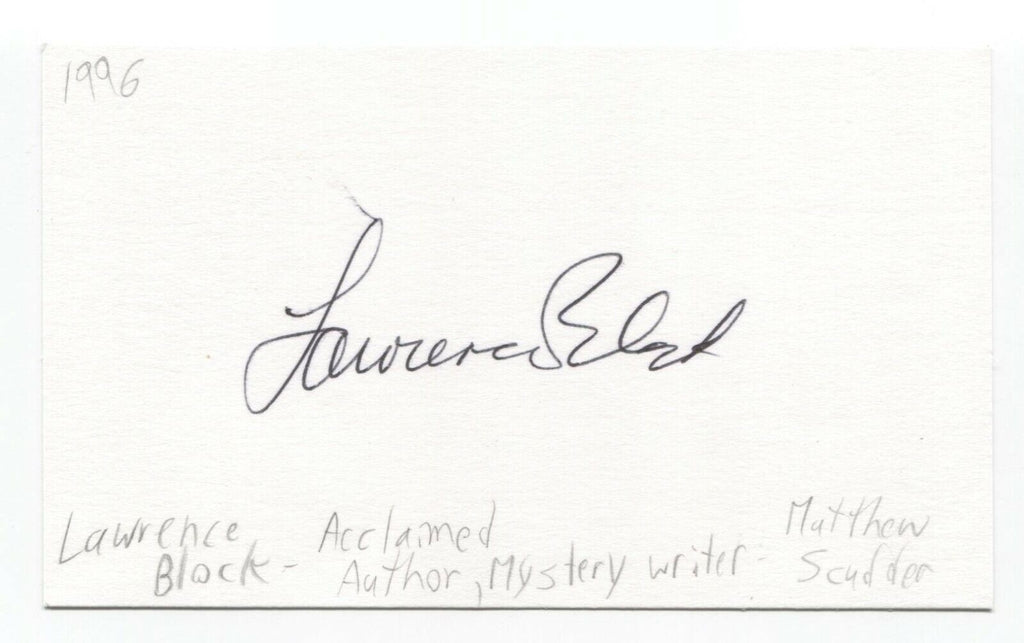 1996
Lawrence Block
Lawrence Acclaimed Matthew
Block - Author, Mystery writer - Scudder